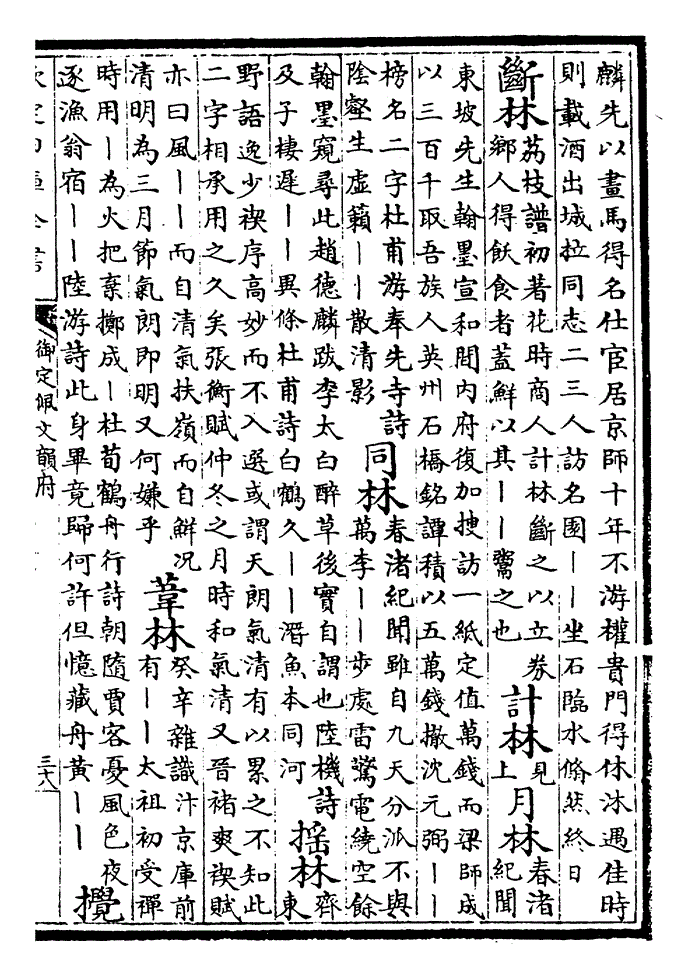 麟先以畫馬得名仕宦居京師十年不游權貴門得休沐遇佳時
則載酒出城拉同志二三人訪名園丨丨坐石臨水翛然終日
斷林
荔枝譜初著花時商人計林斷之以立券
鄉人得飫食者蓋鮮以其丨丨鬻之也
計林
見
上
月林
春渚
紀聞
東坡先生翰墨宣和間内府復加搜訪一紙定值萬錢而梁師成
以三百千取吾族人英州石橋銘譚積以五萬錢撤沈元弼丨丨
榜名二字杜甫游奉先寺詩
陰壑生虛籟丨丨散清影
同林
春渚紀聞雖自九天分派不與
萬李丨丨步處雷驚電繞空餘
翰墨窺尋此趙德麟跋李太白醉草後實自謂也陸機詩
及子棲遲丨丨異條杜甫詩白鶴久丨丨潛魚本同河
揺林
齊
東
野語逸少禊序高妙而不入選或謂天朗氣清有以累之不知此
二字相承用之久矣張衡賦仲冬之月時和氣清又晉褚爽禊賦
亦曰風丨丨而自清氣扶嶺而自鮮况
清明為三月節氣朗即明又何嫌乎
葦林
癸辛雜識汴京庫前
有丨丨太祖初受禪
時用丨為火把棄擲成丨杜荀鶴舟行詩朝隨賈客憂風色夜
逐漁翁宿丨丨陸游詩此身畢竟歸何許但憶藏舟黄丨丨
攪
欽定四庫全書
御定佩文韻府
三十八